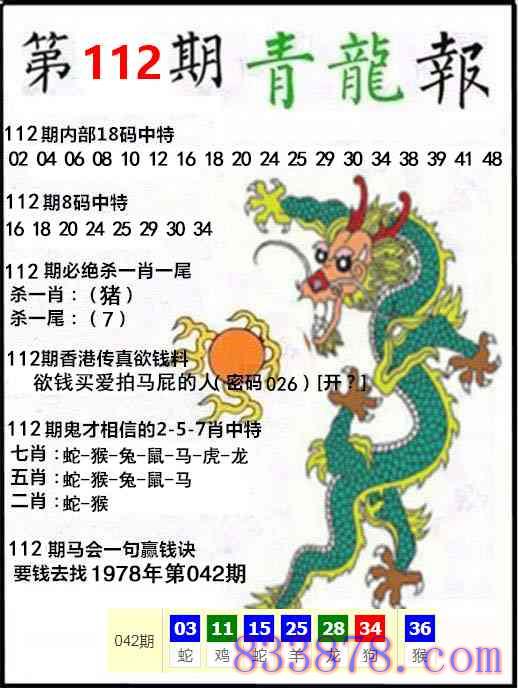 第112期 青龍報
112期内部18码中特
02 04 06 08 10 12 16 18 20 24 25 29 30 34 38 39 41 48
112期8码中特
16 18 20 24 25 29 30 34
112期必绝杀一肖一尾
杀一肖：（猪）
杀一尾：（7）
112期香港传真欲钱料
欲钱买爱拍马屁的人(密码026）[开？]
112期鬼才相信的2-5-7肖中特
七肖：蛇-猴-兔-鼠-马-虎-龙
五肖：蛇-猴-兔-鼠-马
二肖：蛇-猴
112期马会一句赢钱诀
要钱去找1978年第042期
042期 03 11 15 25 28 34 36
蛇 鸡 蛇 羊 龙 狗 猴
833878.com